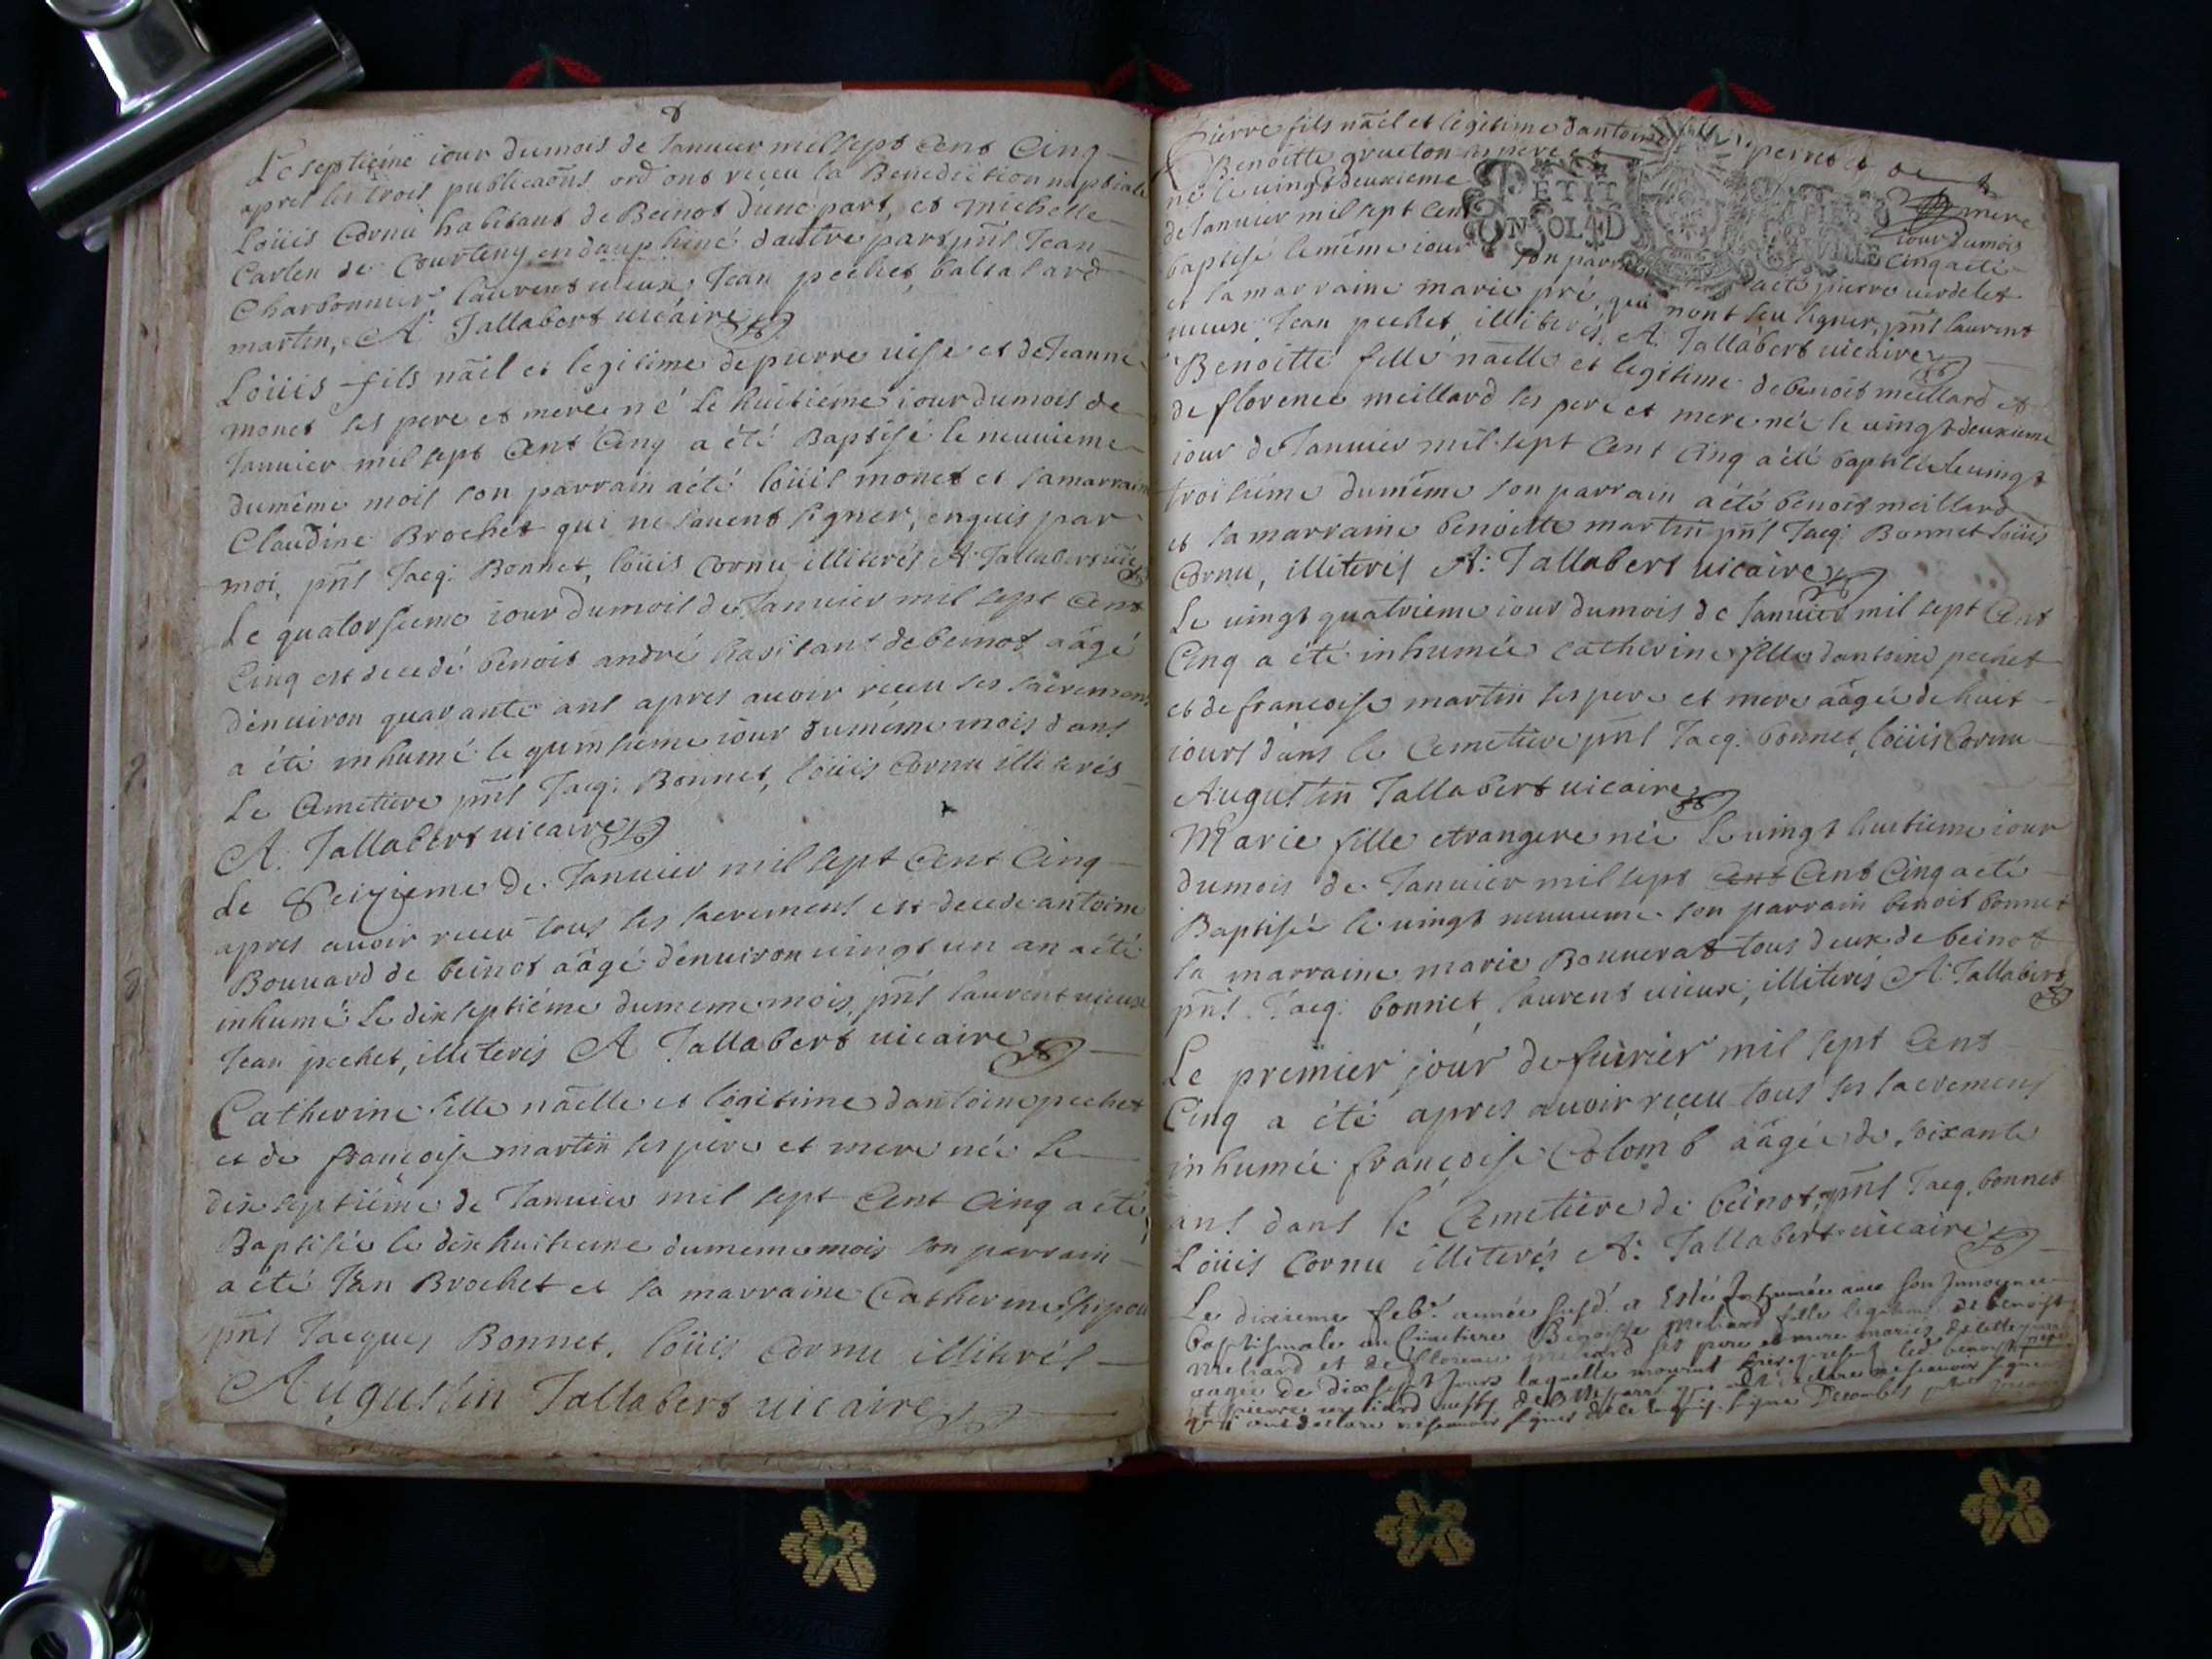 8
Le septiéme iour du mois de Januier mil sept Cent Cinq
apres les trois publicaõns ord ont reçeu la Benediction nuptiale
Loüis Cornu habitant de Beinot d'une part, et michelle
Carlen de Courteny en dauphiné d'autre part pñs Jean
Charbonnier laurent uieux, Jean pechet, baltasard
martin, A: Tallabert uicaire
Loüis fils nãel et legitime de pierre uise et de Jeanne
monet ses pere et mere né le huitiéme iour du mois de
Januier mil sept Cent Cinq a été Baptisé le neuuieme
du méme mois son parrain a été loüis monet et sa marraine
Claudine Brochet qui ne sauent signer, enquis par
moi, pñs Jacq: Bonnet, loüis Cornu illiterés A: Tallabert uic
Le quatorsieme iour du mois de Januier mil sept Cent
Cinq est decedé benoit andré habitant de beinot aâgé
d'enuiron quarante ans apres auoir reçeu ses sacremens
a été inhumé le quinsieme iour du méme mois dans
Le Cemetiere pñs Jacq: Bonnet, loüis Cornu illiterés
A: Tallabert uicaire
Le Seizieme de Januier mil sept Cent Cinq
apres auoir receu tous ses sacremens est decede antoine
Bouuard de beinot aâgé d'enuiron uingt un an a été
inhumé Le dix septiéme du meme mois, pñs laurent uieux
Jean pechet, illiterés A Tallabert uicaire
Catherine fille nãelle et légitime d'antoine pechet
et de françoise martin ses pere et mere née le
dix septiéme de Januier mil sept Cent Cinq a été
Baptisée le dix huitieme du meme mois son parrain
a été Jan Brochet et sa marraine Catherine
pñs Jacques Bonnet, loüis Cornu illiterés
Augustin Tallabert uicaire
Pierre fils nãel et légitime d'antoine perret
Benoitte grueton ses pere et mere
né le uingt deuxieme iour du mois
de Januier mil sept Cent Cinq a été
PETIT
UN SOL 4 D
baptisé le méme iour son parrain a été pierre uerdelet
et la marraine marie pré, qui n'ont seu signer, pñs laurent
uieux Jean pechet illiterés, A: Tallabert uicaire
Benoitte fille nãelle et legitime de benoit meillard et
de florence meillard ses pere et mere née le uingt deuxieme
iour de Januier mil sept Cent Cinq a été baptisée le uingt
troisiéme du méme son parrain a été benoit meillard
et la marraine benoitte martin pñs Jacq: Bonnet loüis
Cornu, illiterés A: Tallabert uicaire
Le uingt quatrieme iour du mois de Januier mil sept Cent
Cinq a été inhumée catherine fille d'antoine pechet
et de francoise martin ses pere et mere aâgée de huit
iours dans le Cemetiere pñs Jacq: bonnet, loüis Cornu
Augustin Tallabert uicaire
Marie fille etrangere née Le uingt huitieme iour
du mois de Januier mil sept Cent Cent Cinq a été
Baptisée le uingt neuuieme son parrain benoit bonnet
la marraine marie Bonnerat tous deux de beinot
pñs. Jacq: bonnet, laurent uieux, illiterés A: Tallabert
Le premier jour de feurier mil sept Cent
Cinq a été apres auoir reçeu tous ses sacremens
inhumée françoise Colomb aâgée de soixante
ans dans le Cemetiere de beinot, pñs Jacq. bonnet
Loüis Cornu illiterés A: Tallabert uicaire
Le dixieme feb.r année susd. a esté Inhumée aux son Innocence
baptismale au Cimetiere Benoiste meliard fille legitime de benoist
meliard et de florence meliard ses pere et mere mariés
aagée de dix sept jours laquelle mourut hier presents led. benoist
et pierre meliard
qui ont declaré ne scauoir signer